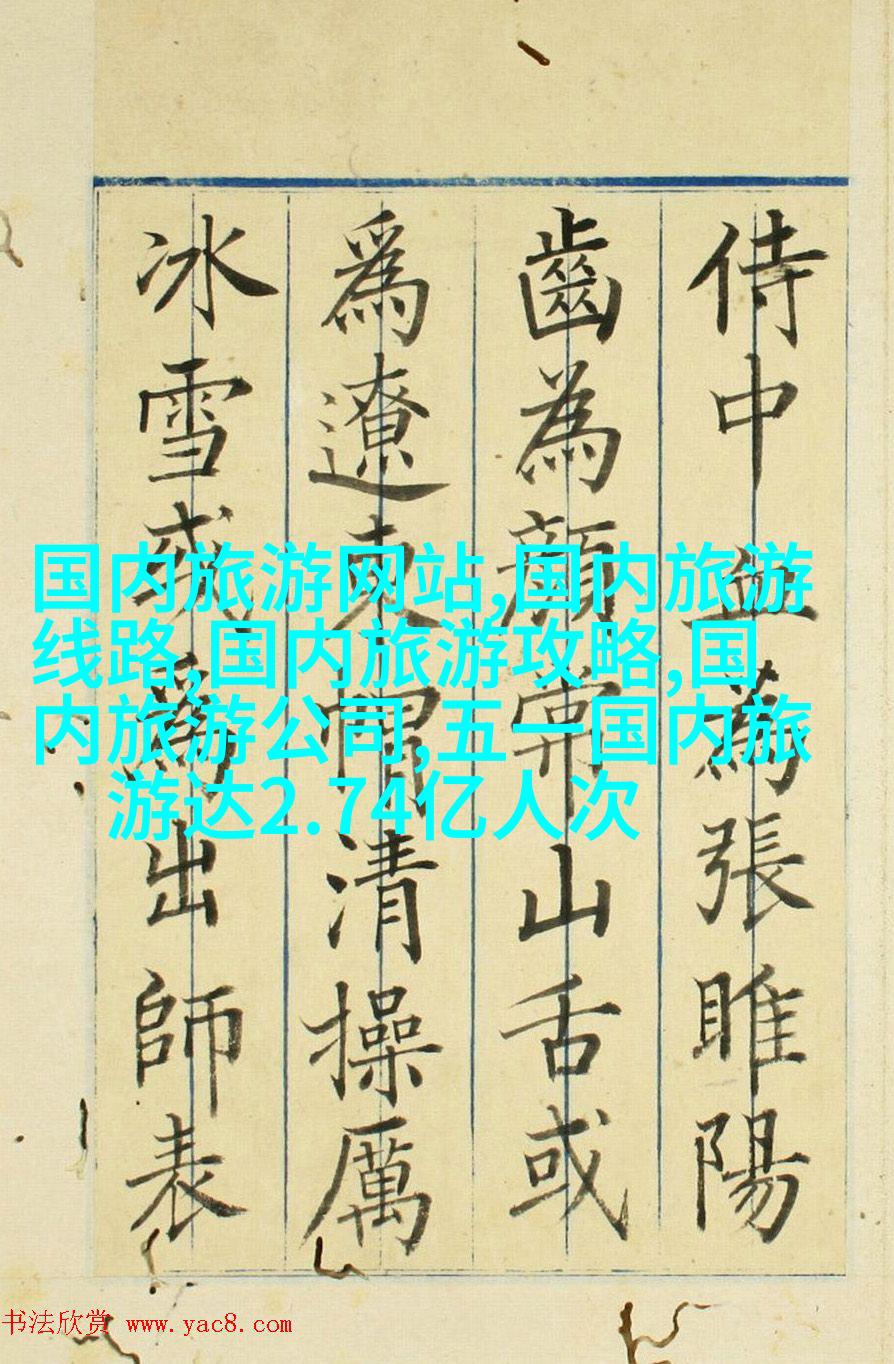 侍中血為張睢陽
齒為顏常山舌或
爲遼東帽清操厲
冰雪或爲出師表
国内旅游网站,国内旅游
线路,国内旅游攻略,国
内旅游公司,五一国内旅
游达2.74亿人次
书法欣赏 www.yac8.com